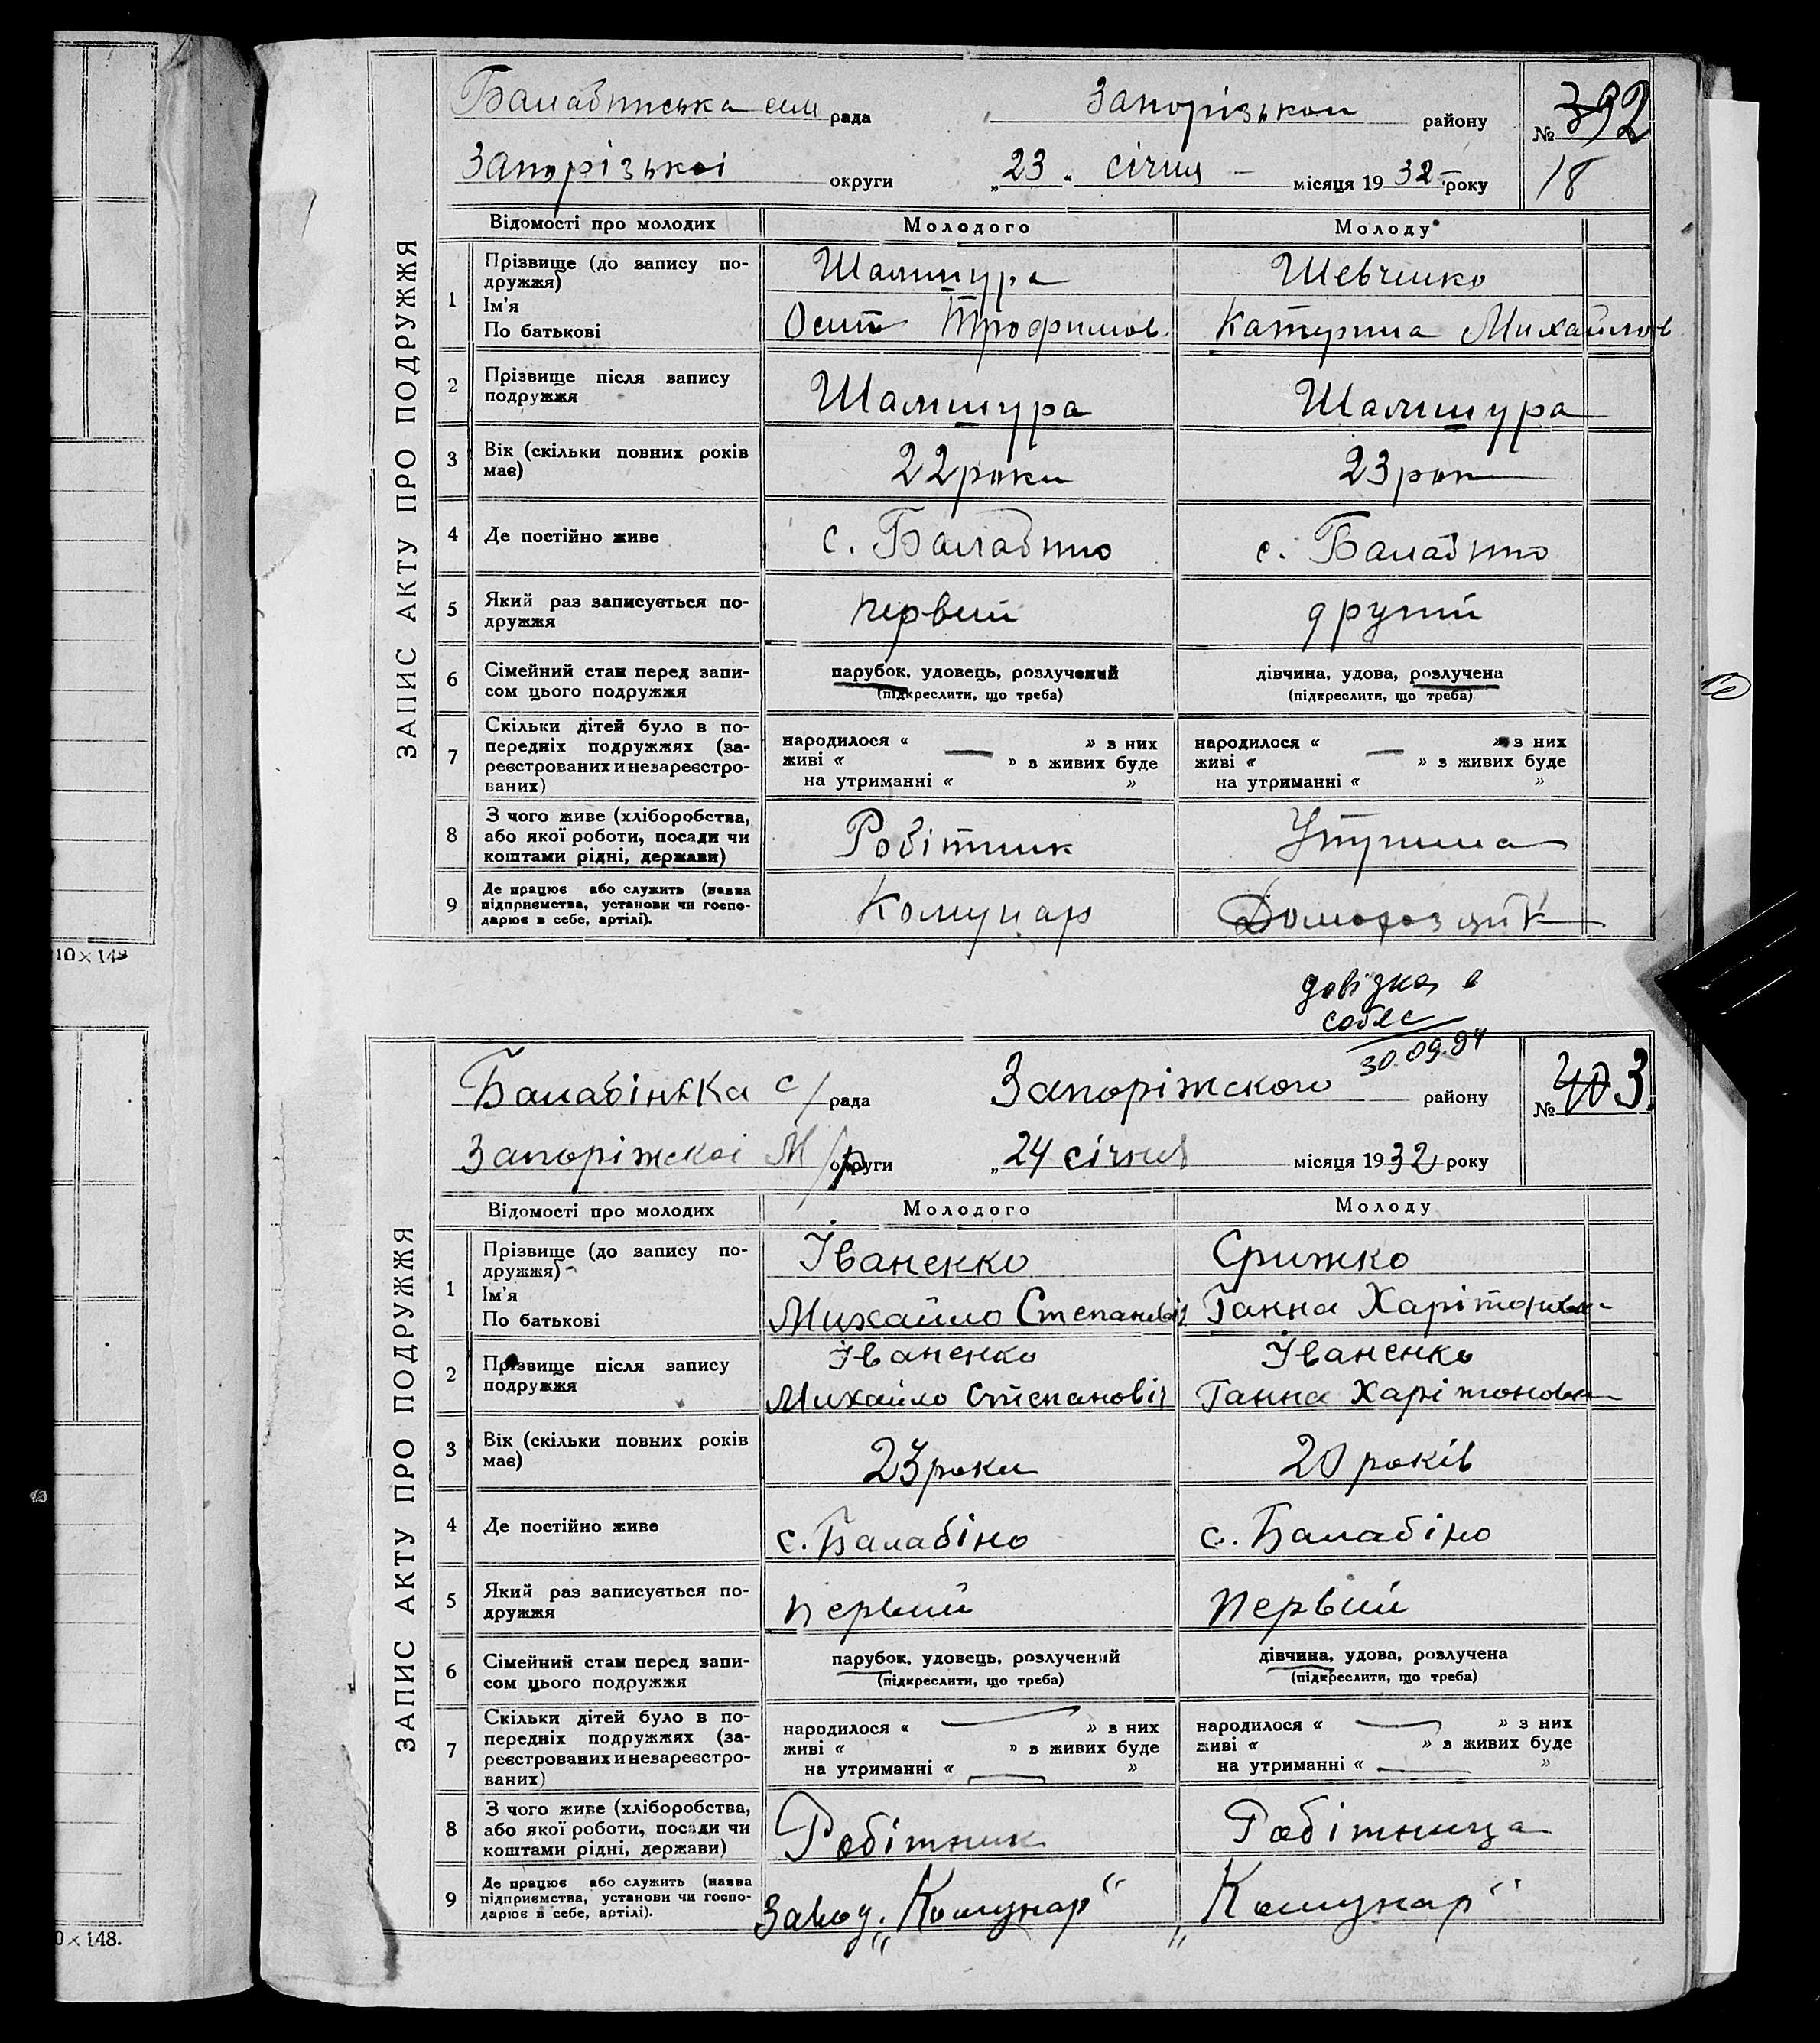 Балабинська сел рада Запорізького району № 392
Запорізької округи „23„ січня місяця 1932 року 18
ЗАПИС АКТУ ПРО ПОДРУЖЖЯ
Відомості про молодих Молодого Молоду
1 Прізвище (до запису по-
дружжя) Шалитура Шевченко
Ім'я
По батькові Осип Трофимов. Катерина Михайлов
2 Прізвище після запису
подружжя Шалишура Шалишура
3 Вік (скільки повних років
має) 22 роки 23 роки
4 Де постійно живе с. Балабино с. Балабино
5 Який раз записується по-
дружжя первий другий
6 Сімейний стан перед запи-
сом цього подружжя парубок, удовець, розлучений дівчина, удова, розлучена
(підкреслити, що треба) (підкреслити, що треба)
7 Скільки дітей було в по-
передніх подружжях (за-
реєстрованих и незареєстро-
ваних)
народилося « — » з них народилося « — » з них
живі « » з живих буде живі « » з живих буде
на утриманні « » на утриманні « »
8 З чого живе (хліборобства,
або якої роботи, посади чи
коштами рідні, держави) Робітник
9 Де працює або служить (назва
підприємства, установи чи госпо-
дарює в себе, артілі). Комунар
10×148
довідка в
собес
30.09.94
Балабінська с/рада Запоріжского району № 403.
Запоріжскоі М/р округи „24 січня місяця 1932 року
ЗАПИС АКТУ ПРО ПОДРУЖЖЯ
Відомості про молодих Молодого Молоду
1 Прізвище (до запису по-
дружжя) Іваненко Єрижко
Ім'я
По батькові Михайло Степановіч Ганна Харітоновна
2 Прізвище після запису Іваненко Іваненко
подружжя Михайло Степановіч Ганна Харітоновна
3 Вік (скільки повних років
має) 23 роки 20 років
4 Де постійно живе с. Балабіно с. Балабіно
5 Який раз записується по-
дружжя первий первий
6 Сімейний стан перед запи-
сом цього подружжя парубок, удовець, розлучений дівчина, удова, розлучена
(підкреслити, що треба) (підкреслити, що треба)
7 Скільки дітей було в по-
передніх подружжях (за-
реєстрованих и незареєстро-
ваних)
народилося « — » з них народилося « — » з них
живі « » з живих буде живі « » з живих буде
на утриманні « — » на утриманні « — »
8 З чого живе (хліборобства,
або якої роботи, посади чи
коштами рідні, держави) Робітник Робітница
9 Де працює або служить (назва
підприємства, установи чи госпо-
дарює в себе, артілі). Завод „Комунар" „Комунар"
0×148.